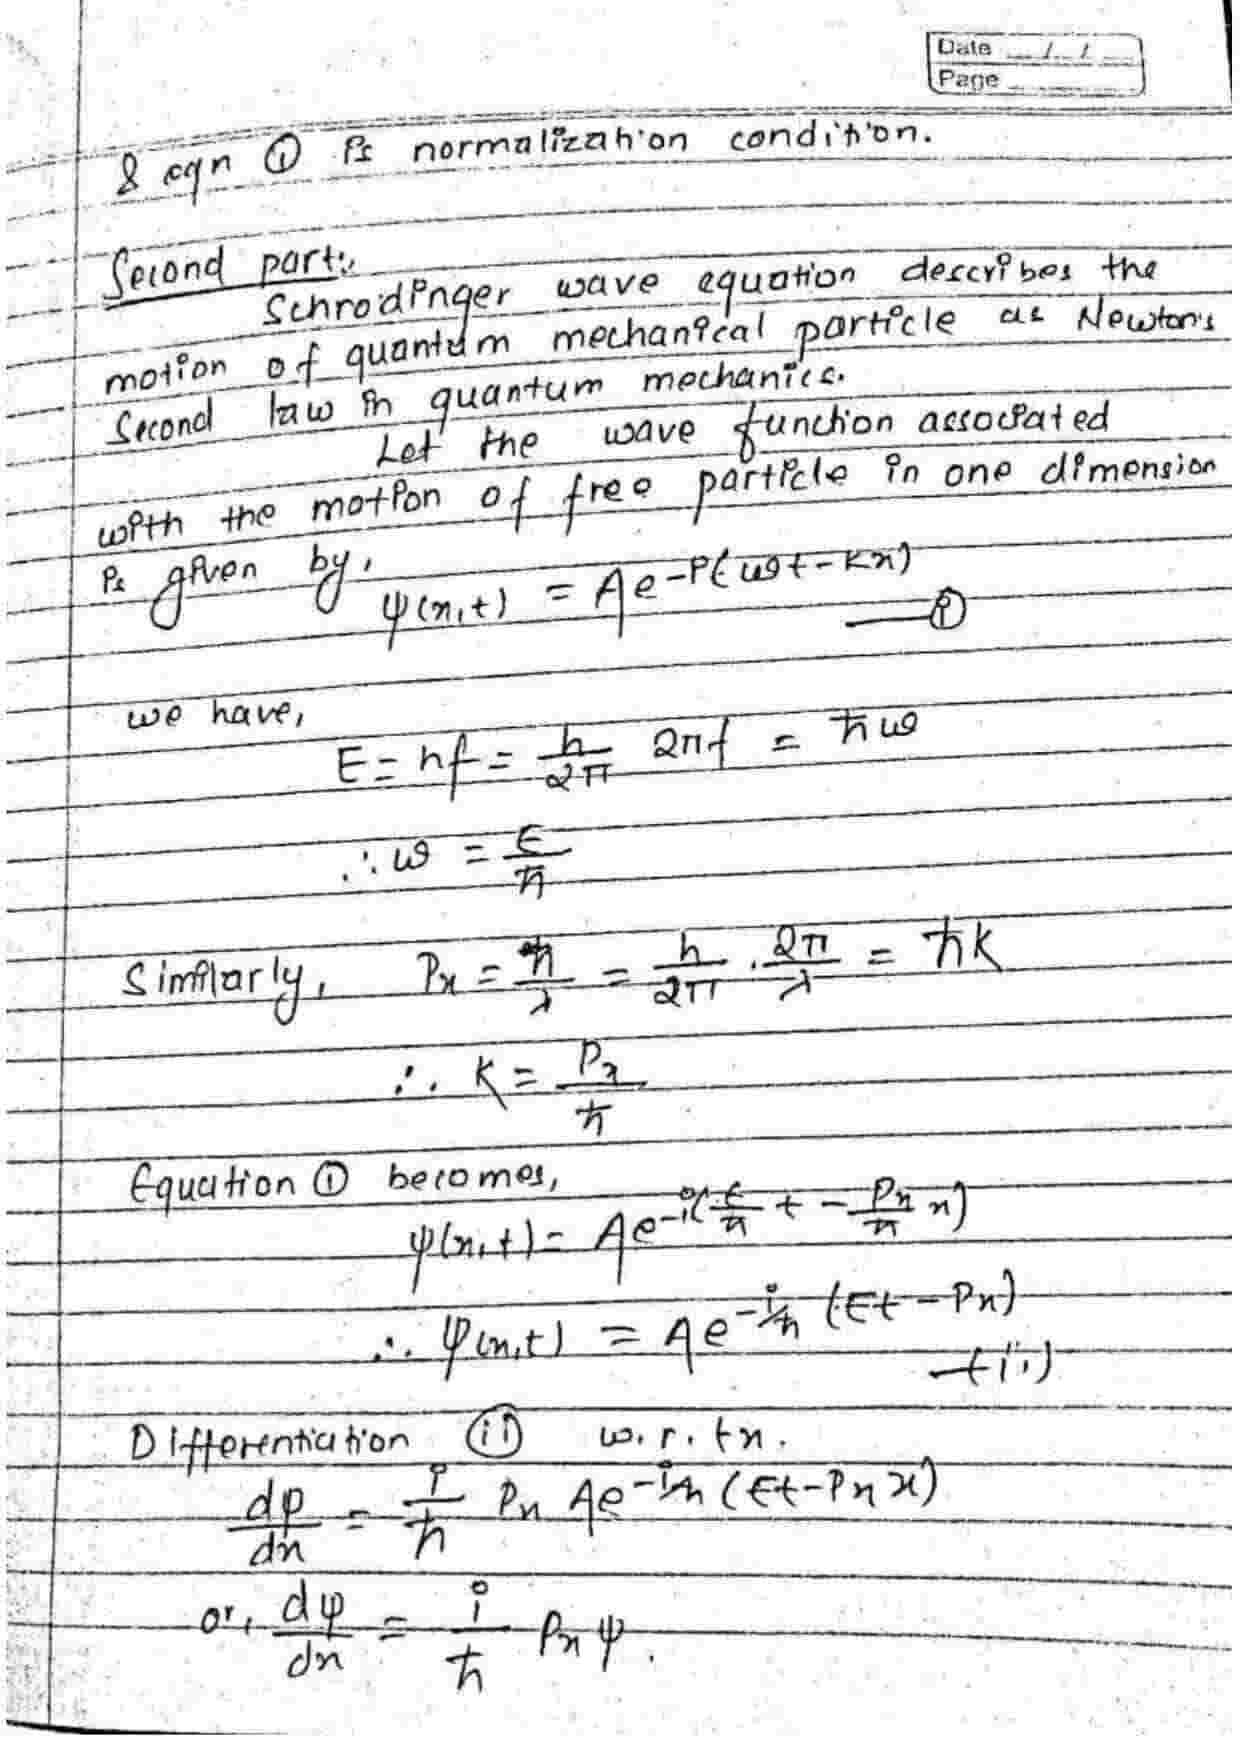 Date __/__/__
Page ______
& eqn ① is normalization condition.
Second part:,
Schrodinger wave equation describes the
motion of quantum mechanical particle as Newton's
Second law in quantum mechanics.
Let the wave function associated
with the motion of free particle in one dimension
is given by,
ψ(x,t) = Ae^-i(ωt-kx)
—①
we have,
E = hf = h/2π 2πf = ħω
∴ ω = E/ħ
Similarly, Px = h/λ = h/2π . 2π/λ = ħk
∴ K = Px/ħ
Equation ① becomes,
ψ(x,t) = Ae^-i(E/ħ t - Px/ħ x)
∴ ψ(x,t) = Ae^-i/ħ (Et - Px)
—(ii)
Differentiation (ii) w.r.t x.
dψ/dx = i/ħ Px Ae^-i/ħ (Et-Px x)
or, dψ/dx = i/ħ Px ψ.